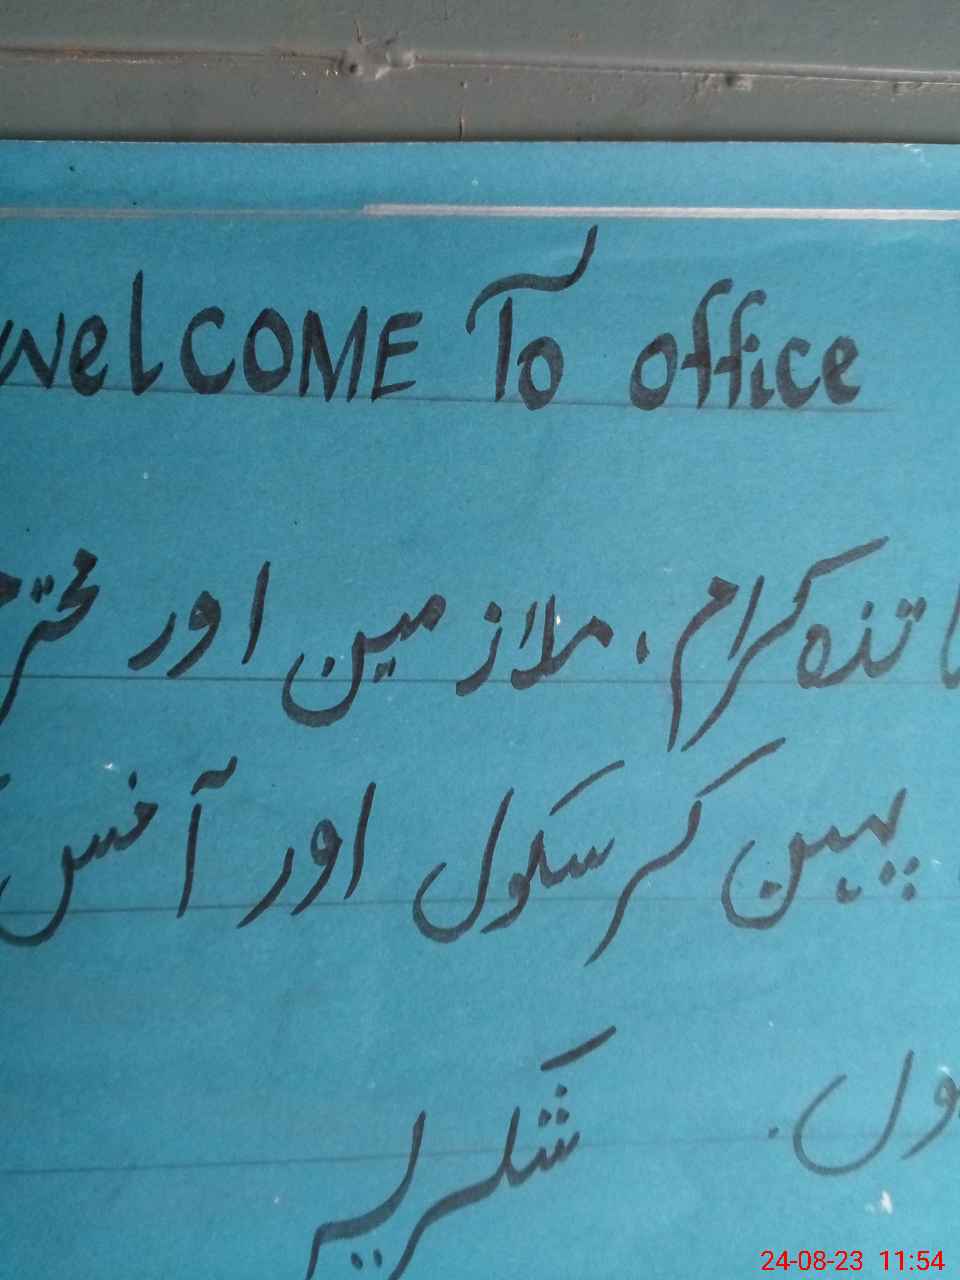 welCOME To office
اتذہ کرام، ملازمین اور محتر
پہین کر سکول اور آفس
ول۔
شکریہ
24-08-23 11:54